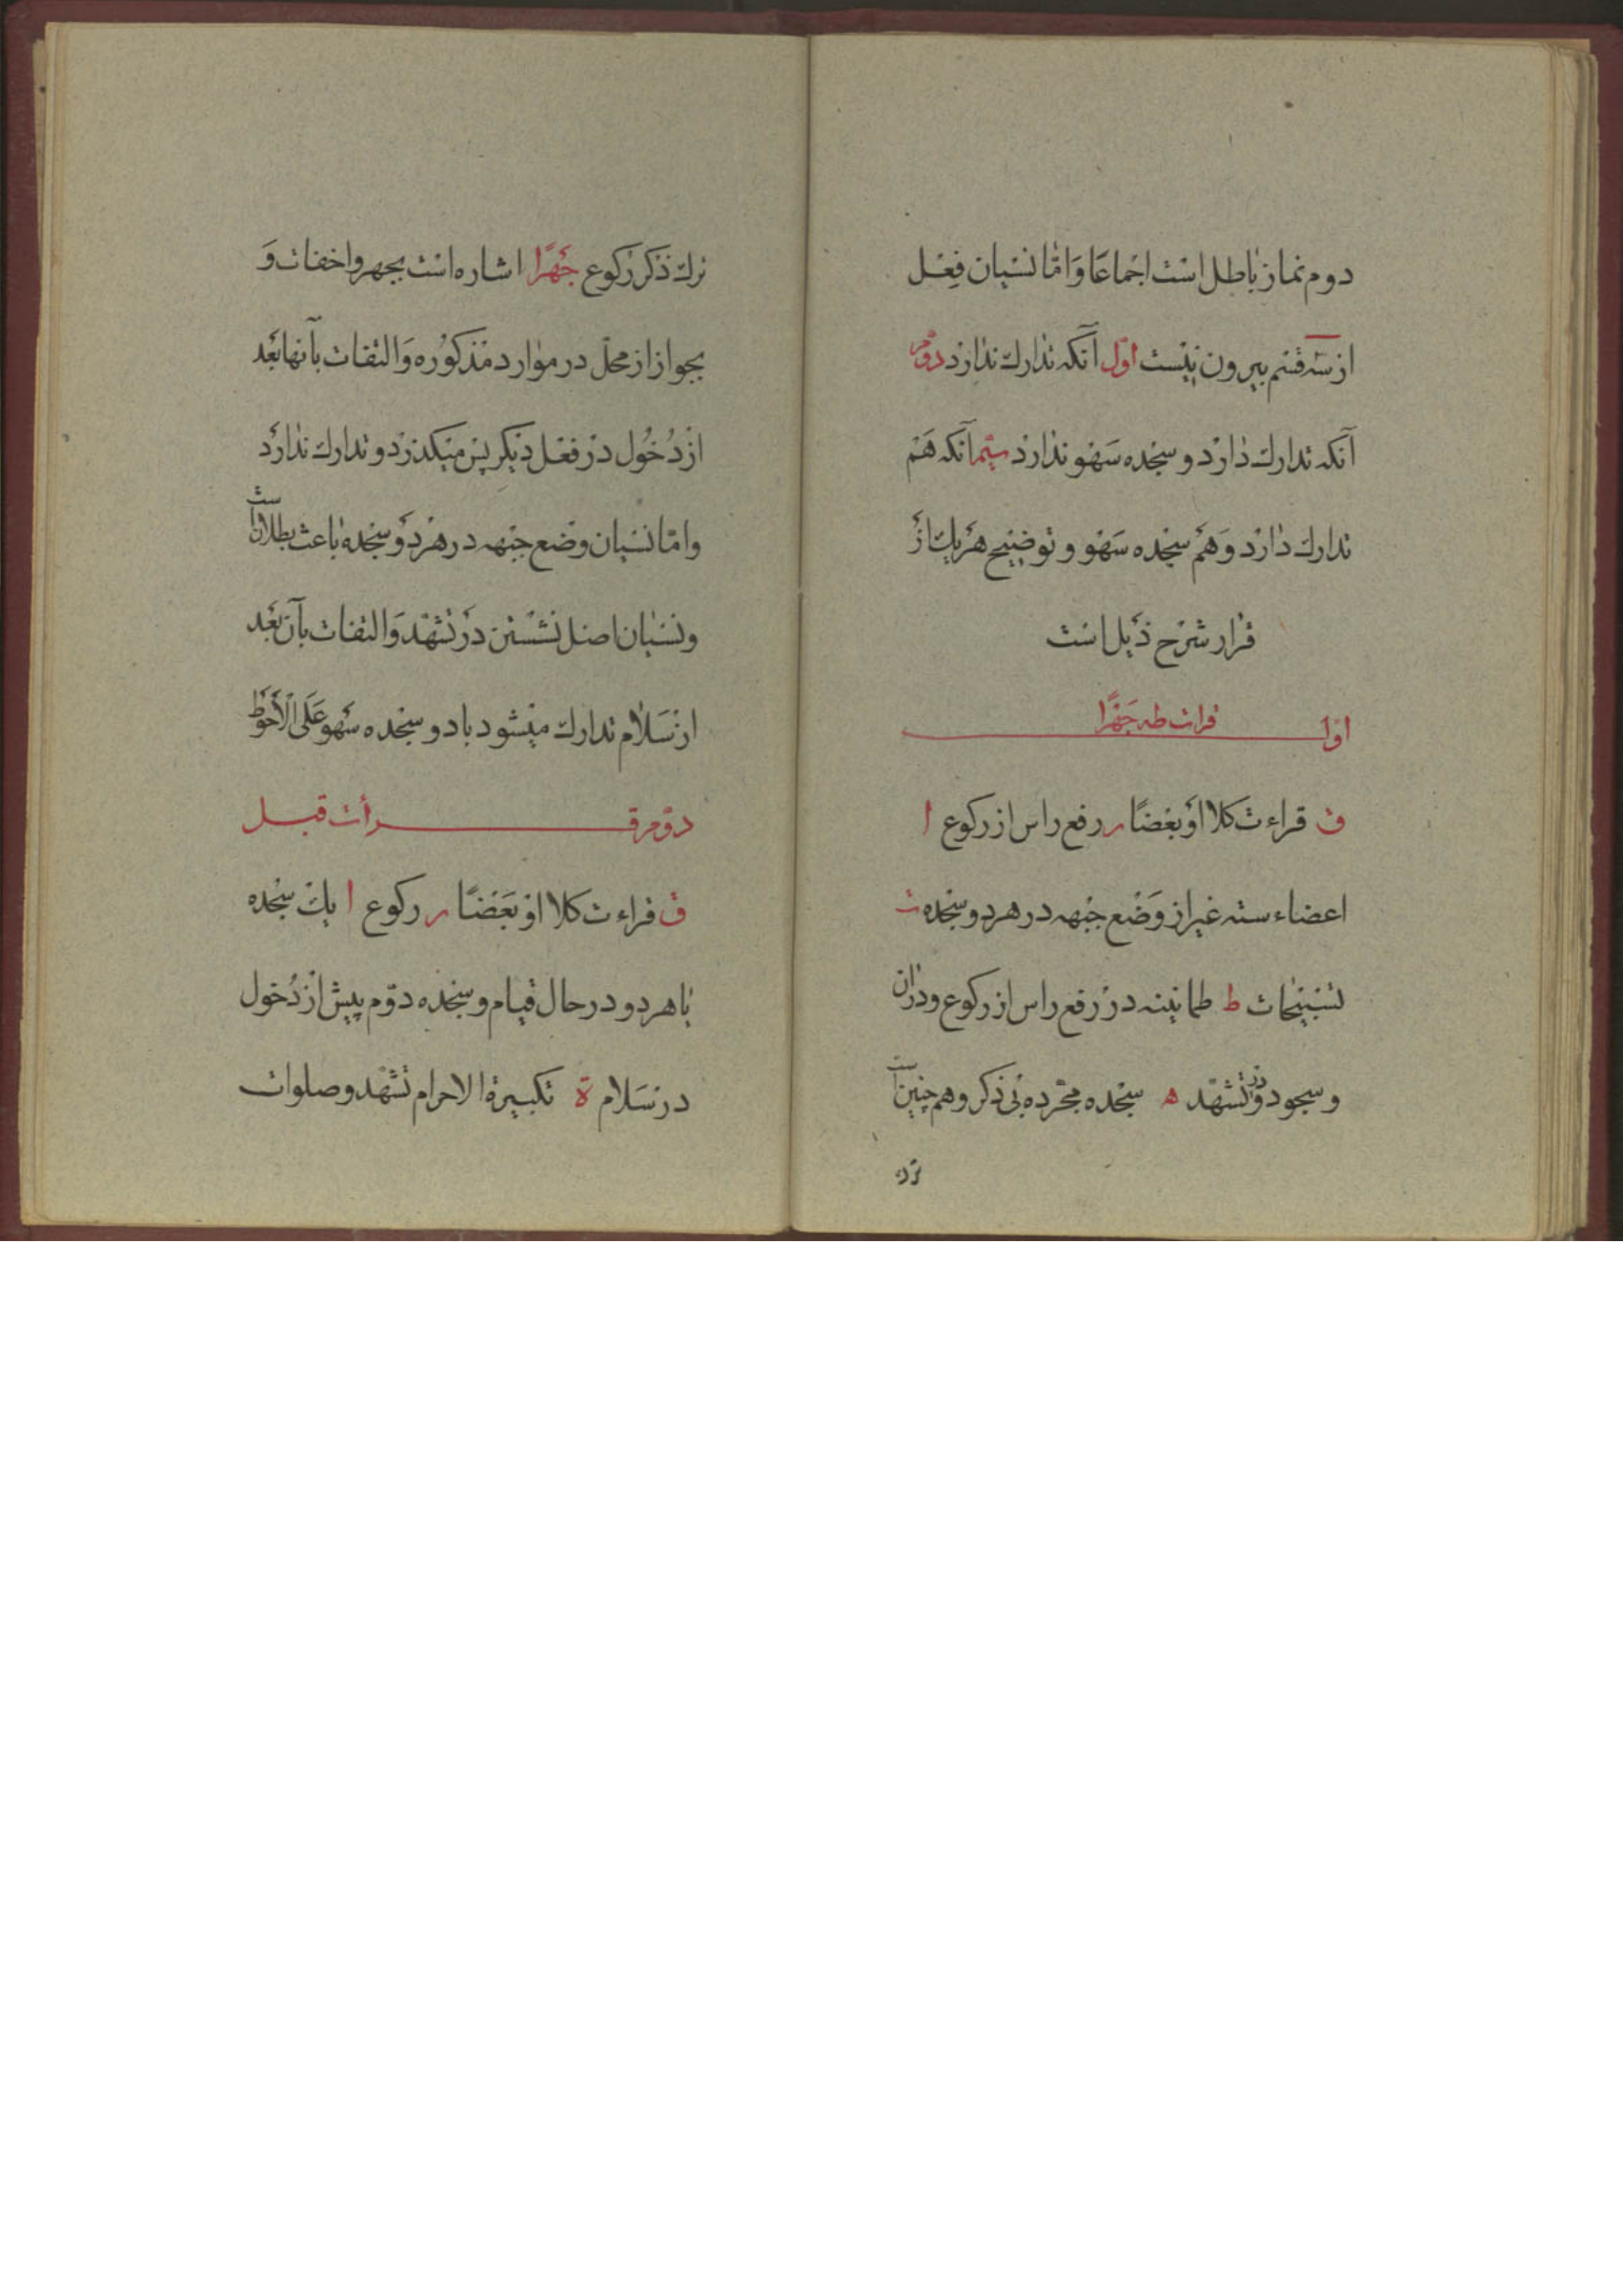 دوم نماز باطل است اجماعًا وَ امّا نسیان فِعل
از سه قسم بیرون نیست اوّل آنکه تدارك ندارد دوّم
آنکه تدارك دارد و سجده سَهو ندارد سیّم آنکه هَم
تدارك دارد وَ هَم سجده سَهو و توضیح هَر یك از
قرار شرح ذَیل است
اوّل قرات طه جَهرًا
ق قراءت کلا اَو بعضًا ر رفع راس از رکوع ا
اعضاء سته غیر از وَضع جبهه در هر دو سجده ت
تسبیحات ط طمانینه در رفع راس از رکوع و در ان
و سجود و در تشهّد ه سجده مجّرده بی ذکر و هم چنین است
ترك
ترك ذکر رکوع جَهرًا اشاره است بجهر و اخفات وَ
بجواز از محلّ در موارد مذکوُره وَ التفات بآنها بَعد
از دُخُول در فعل دیکر پس میکذرد و تدارك ندارَد
و امّا نسیان وضع جبهه در هر دو سجده باعث بطلان است
و نسیان اصل نشستن در تشهّد وَ التفات بآن بَعد
از سَلام تدارك میشود با دو سجده سَهو عَلَی الاَحوَط
دوّم قرأت قبل
ق قراءت کلا او بَعَضًا ر رکوع ا یك سجده
یا هر دو در حال قیام و سجده دوّم پیش از دُخول
در سَلام ة تکبیرة الاحرام تشهّد و صلوات